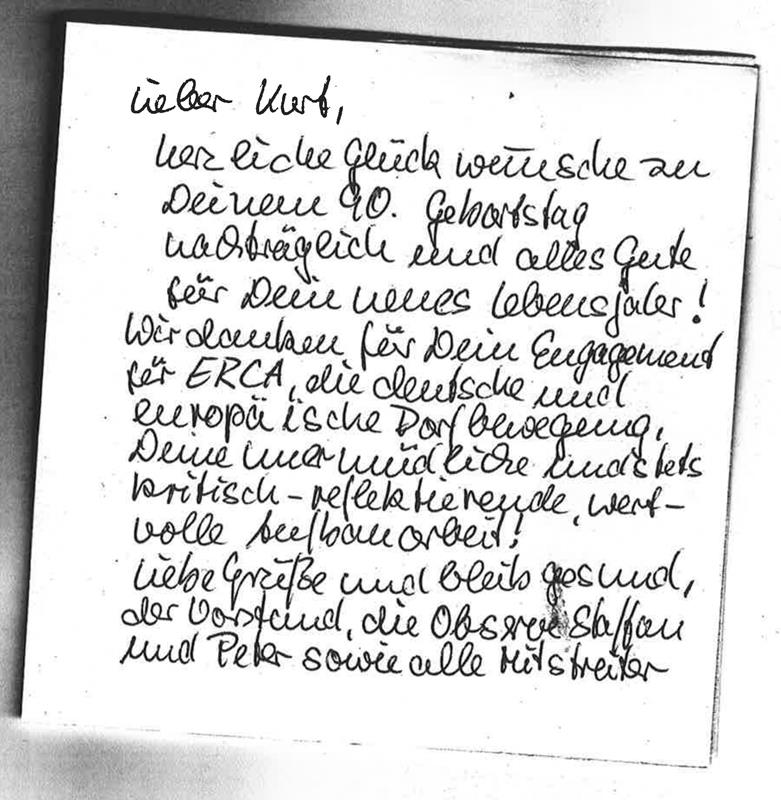 Lieber Kurt,
herzliche Glückwünsche zu
Deinem 90. Geburtstag
nachträglich und alles Gute
für Dein neues Lebensjahr!
Wir danken für Dein Engagement
für ERCA, die deutsche und
europäische Dorfbewegung,
Deine unermüdliche und stets
kritisch-reflektierende, wert-
volle Aufbauarbeit!
Liebe Grüße und bleib gesund,
der Vorstand, die Staffan
und Peter sowie alle Mitstreiter